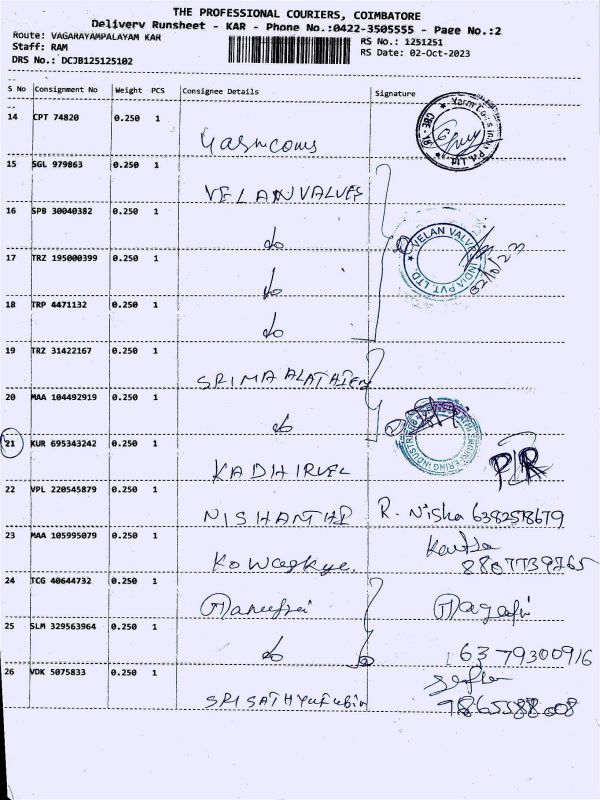 THE PROFESSIONAL COURIERS, COIMBATORE
Delivery Runsheet - KAR - Phone No.:0422-3505555 - Page No.:2
Route: VAGARAYAMPALAYAM KAR RS No.: 1251251
Staff: RAM RS Date: 02-Oct-2023
DRS No.: DCJB125125102
S No Consignment No Weight PCS Consignee Details Signature
14 CPT 74820 0.250 1
15 SGL 979863 0.250 1 VELAN VALVES
16 SPB 30040382 0.250 1 do
VELAN VALVES INDIA PVT LTD.
17 TRZ 195000399 0.250 1 do
18 TRP 4471132 0.250 1 do
19 TRZ 31422167 0.250 1
20 MAA 104492919 0.250 1 do
21 KUR 695343242 0.250 1 KADHIRVEL
22 VPL 220545879 0.250 1 NISHANTHI R. Nisha
23 MAA 105995079 0.250 1
24 TCG 40644732 0.250 1
25 SLM 329563964 0.250 1 do 6379300916
26 VDK 5075833 0.250 1